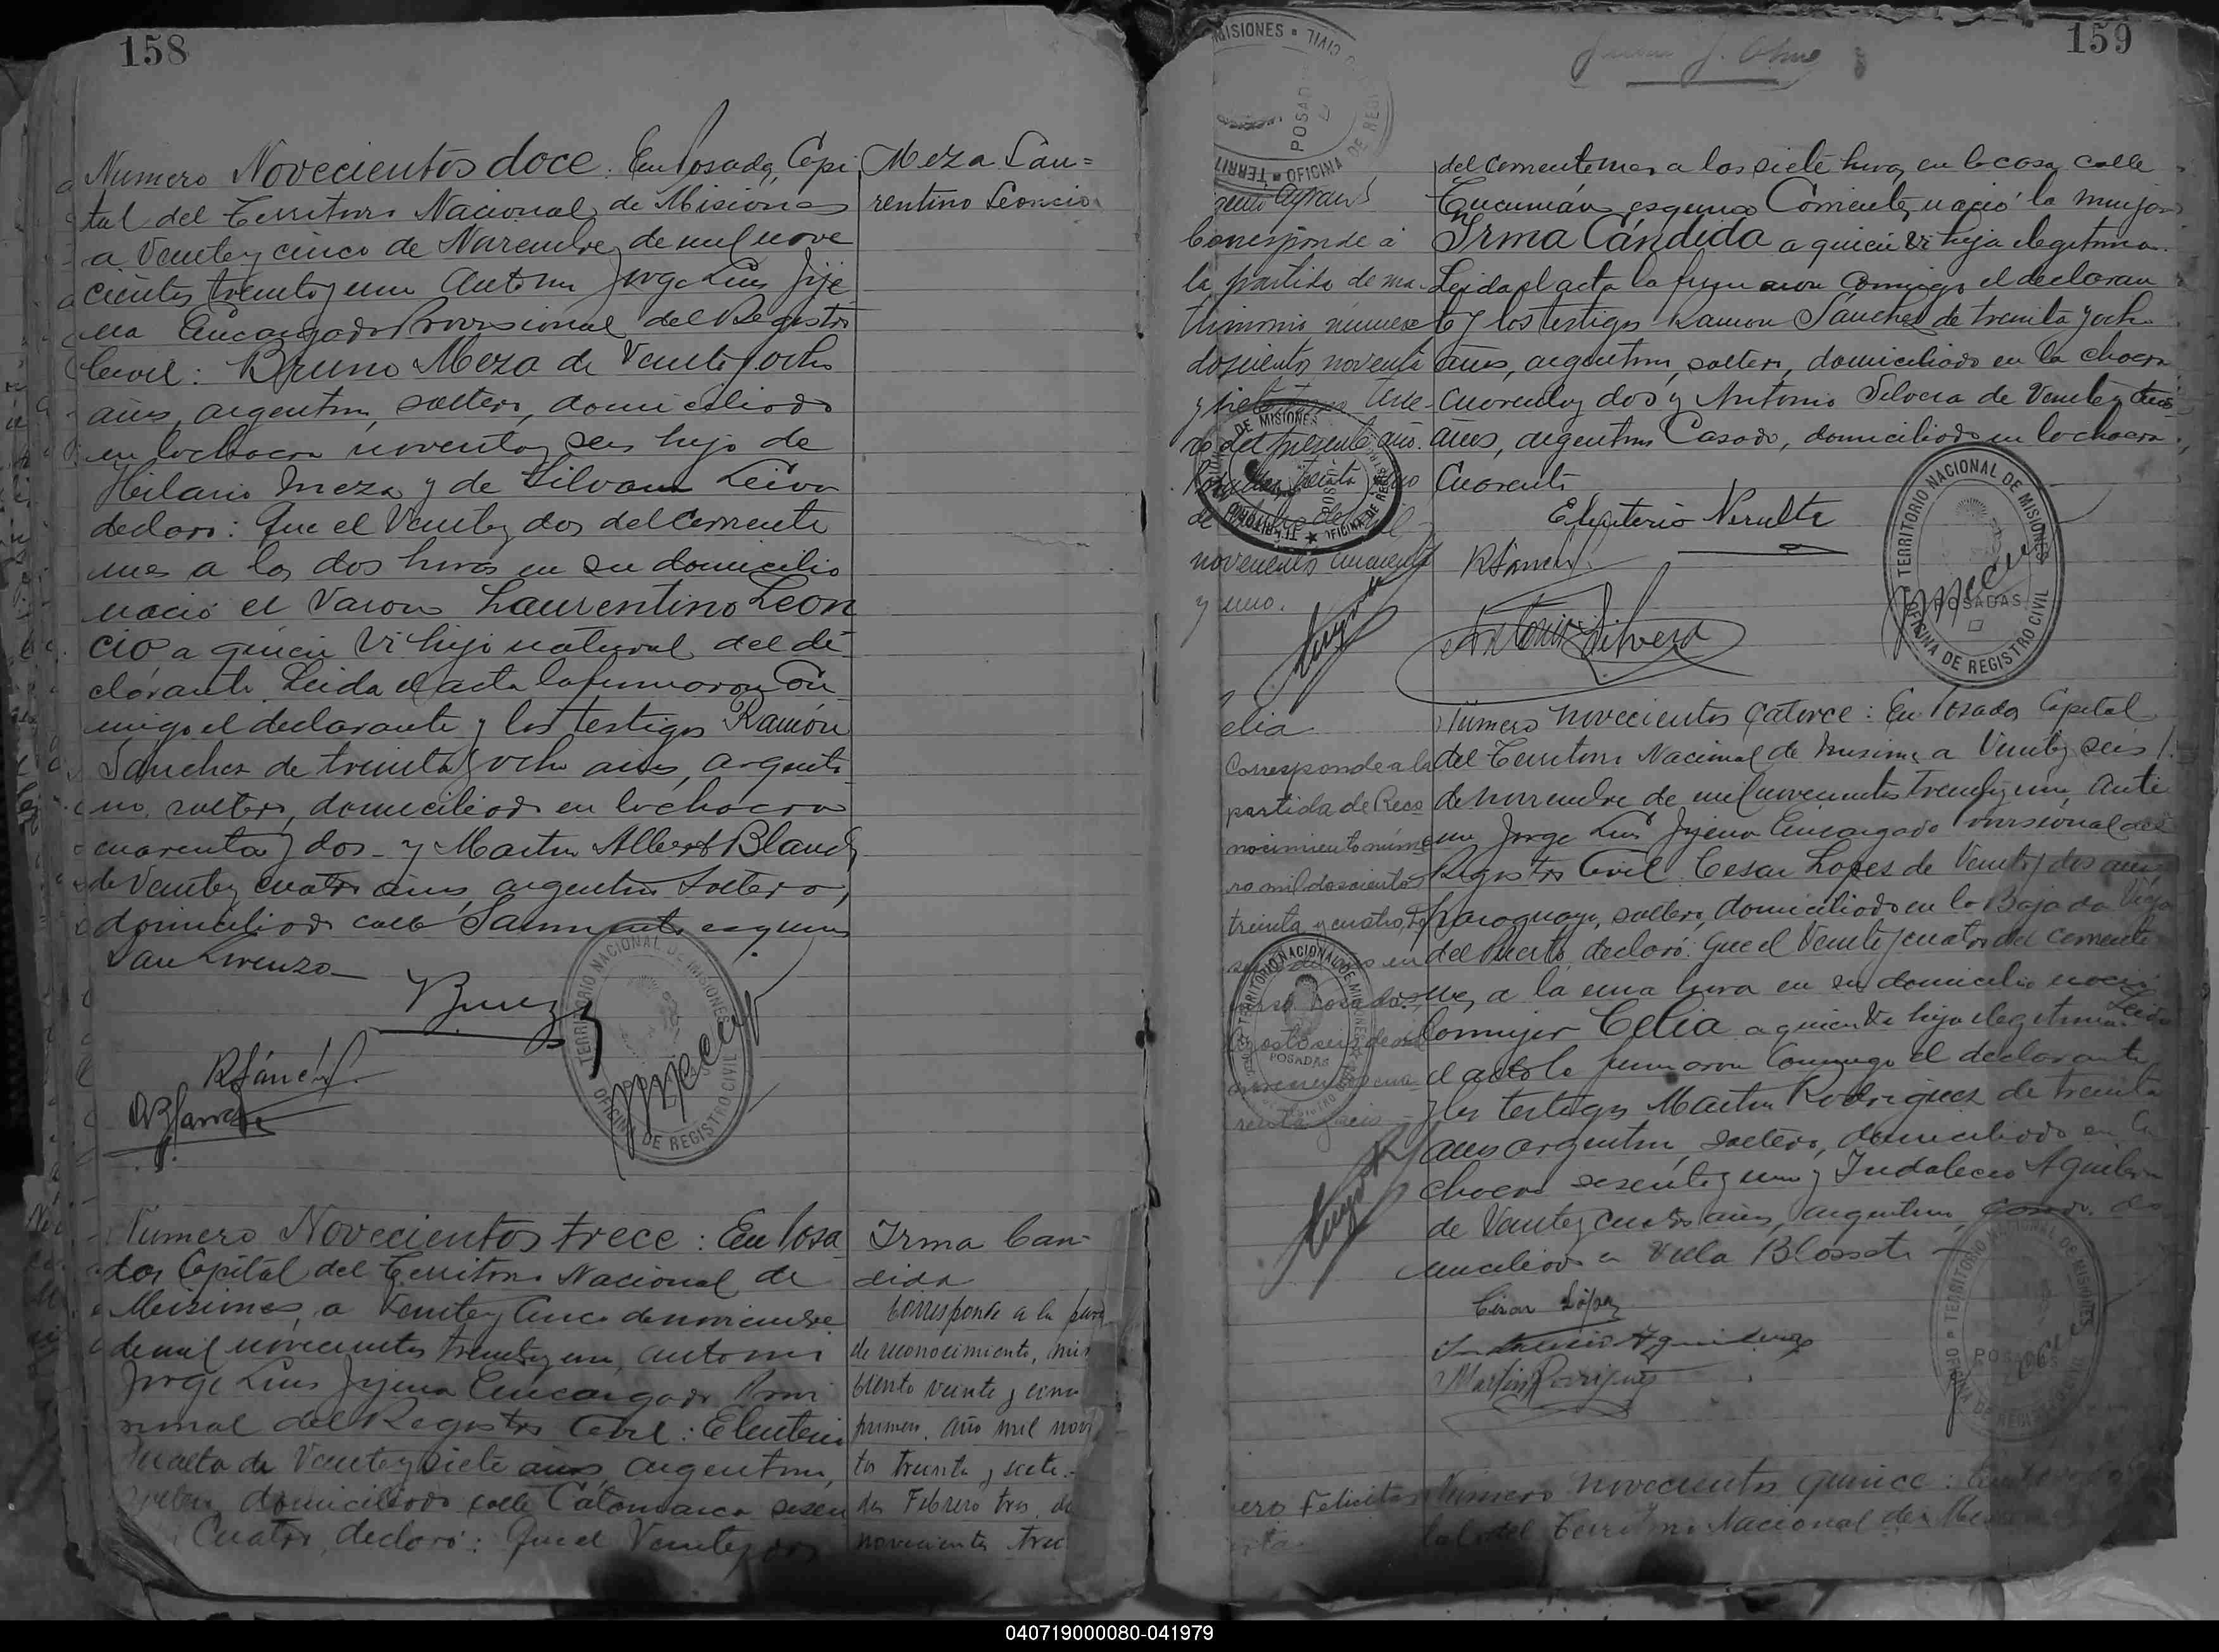 158
Numero Novecientos doce. En Posadas, Capi
tal del Territorio Nacional de Misiones
a Veinte y cinco de Noviembre de mil nove
cientos treinta y uno Ante mi Jorge Luis Jije
na Encargado Provisional del Registro
Civil: Bruno Meza de Veinte y ocho
años, argentino, soltero, domiciliado
en la chacra noventa y seis hijo de
Hilario Meza y de Silvana Leiva
declaro: Que el Veinte y dos del corriente
mes a las dos horas en su domicilio
nació el Varon Laurentino Leon
cio, a quien vi hijo natural del de
clarante. Leida el acta la firmaron con
migo el declarante y los testigos Ramón
Sanchez de treinta y ocho años, argenti
no, soltero, domiciliado en la chacra
cuarenta y dos y Martin Albert Blanch
de Veinte y cuatro años, argentino soltero,
domiciliado calle Sarmiento esquina
San Lorenzo
Meza Lau=
rentino Leoncio
R Sánchez
TERRITORIO NACIONAL DE MISIONES
OFICINA DE REGISTRO CIVIL
Numero Novecientos trece: En Posa
das Capital del Territorio Nacional de
Misiones, a Veinte y cinco de noviembre
de mil novecientos treinta y uno, ante mi
Jorge Luis Jijena Encargado Provi
sional del Registro Civil: Eleuterio
Peralta de Veinte y siete años, argentino,
soltero, domiciliado calle Catamarca sesen
Cuatro, declaró: Que el Veinte y dos
Irma Can-
dida
Corresponde a la par
de reconocimiento,
ciento veinte y
primero, año mil nov
tos treinta y siete.-
das Febrero tres de
novecientos trei
159
MISIONES
CIVIL
POSAD
OFICINA DE REGI
TERRI
Corresponde a
la partida de ma-
trimonio número
doscientos noventa
y siete tomo
ro del presente año.
de
novecientos cuarenta
y uno.
del corriente mes a las siete horas en la casa calle
Tucumán esquina Corrientes nació la mujer
Irma Cándida a quien vi hija ilegitima.
Leida el acta la firmaron conmigo el declaran
te y los testigos Ramon Sánchez de treinta y ocho
años, argentino, soltero, domiciliado en la chacra
cuarenta y dos y Antonio Silvera de Veinte y
años, argentino Casado, domiciliado en la chacra
Cuarenta
Eleuterio Peralta
R Sánchez
Antonio Silvera
TERRITORIO NACIONAL DE MISIONES
POSADAS
OFICINA DE REGISTRO CIVIL
elia
Corresponde a la
partida de Reco
nocimiento núme
ro mil doscientos
treinta y cuatro,
Numero novecientos catorce: En Posadas Capital
del Territorio Nacional de Misiones a Veinte y seis
de noviembre de mil novecientos treinta y uno, ante
mi Jorge Luis Jijena Encargado Provisional del
Registro Civil Cesar Lopez de Veinte y dos años,
paraguayo, soltero, domiciliado en la Bajada Vieja
del Puerto, declaró: Que el Veinte y cuatro del corriente
mes, a la una hora en su domicilio nació
la mujer Celia a quien vi hija ilegitima. Leida
el acta la firmaron conmigo el declarante
y los testigos Martin Rodriguez de treinta
años argentino, soltero, domiciliado en la
chacra sesenta y uno y Indalecio Aguilera
de Veinte y cuatro años, argentino, casado, do
miciliado en Villa Blosset
César López
Indalecio Aguilera
Martin Rodriguez
Felicitas
Numero novecientos quince:
tal del Territorio Nacional de Mi
040719000080-041979